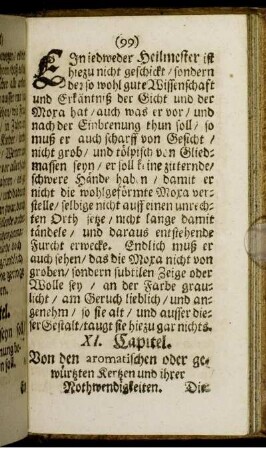 (99)
EIn jedweder Heilmester ist
hiezu nicht geschickt / sondern
der so wohl gute Wissenschaft
und Erkäntniß der Gicht und der
Moxa hat / auch was er vor / und
nach der Einbrenung thun soll / so
muß er auch scharff von Gesicht /
nicht grob / und tölpisch von Glied-
massen seyn / er soll keine zitternde /
schwere Hände haben / damit er
nicht die wohlgeformte Moxa ver-
stelle / selbige nicht auff einen unrech-
ten Orth setze / nicht lange damit
tändele / und daraus entstehende
Furcht erwecke. Endlich muß er
auch sehen / das die Moxa nicht von
groben / sondern subtilen Zeige oder
Wolle sey / an der Farbe grau-
licht / am Geruch lieblich / und an-
genehm / so sie alt / und ausser die-
ser Gestalt / taugt sie hiezu gar nichts.
XI. Capitel.
Von den aromatischen oder ge-
würtzten Kertzen und ihrer
Nothwendigkeiten. Die